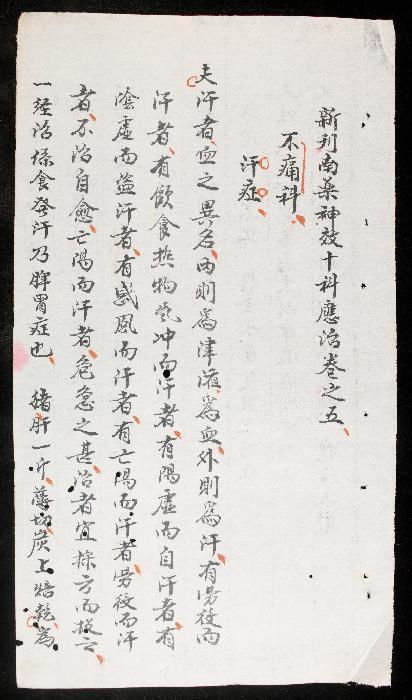 新刊南藥神效十科應治卷之五
不痛科
汗症
夫汗者血之異名内則爲津液爲血外則爲汗有勞役而
汗者有飲食热物氣冲而汗者有陽虛而自汗者有
陰虛而盜汗者有感風而汗者有亡陽而汗者勞役而汗
者不治自愈亡陽而汗者危急之甚治者宜採方而投之
一經治係食發汗乃脾胃症也 猪肝一斤薄切炭上焙乾為